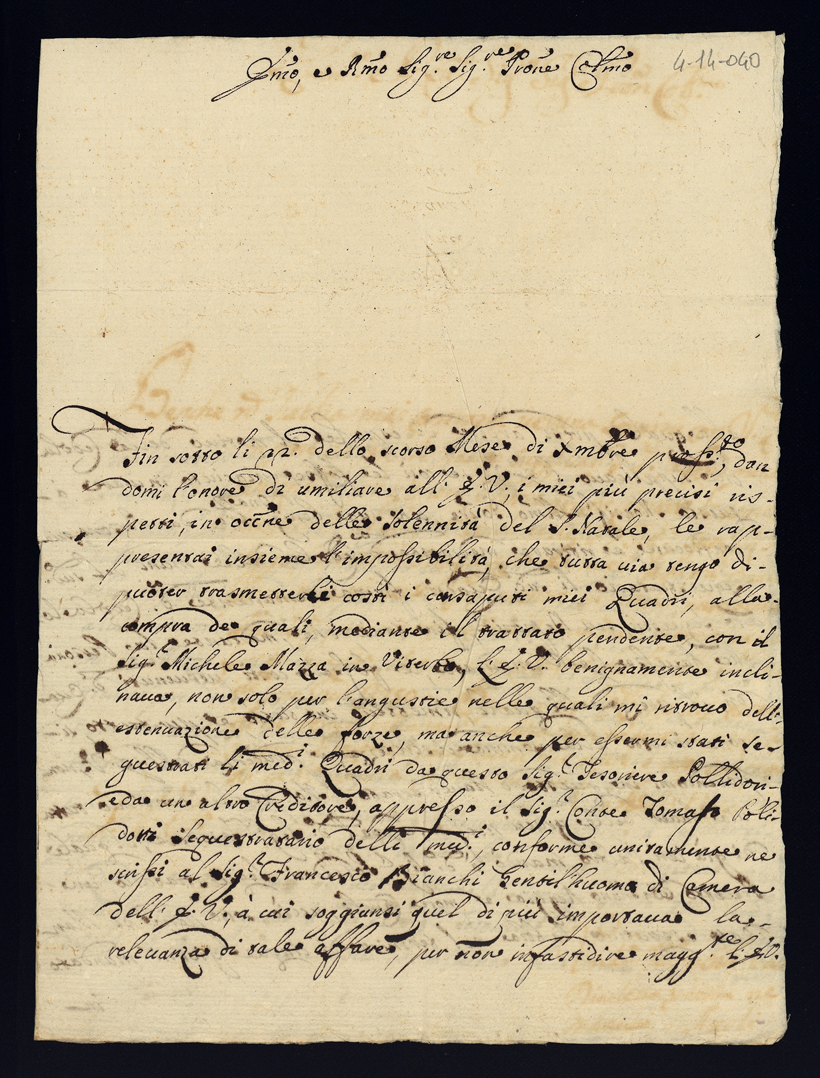 4-14-040
Jmo, e Rmo Sig.re Sig.re Prone Colmo
Fin sotto li 22. dello scorso Mese di Xmbre pross.to, dan
domi l'onore di umiliare all'E.V. i miei più precisi ris-
petti, in occne delle solennità del S. Natale, le rap-
presentai insieme l'impossibilità, che tutta via tengo di-
puoter trasmetterli costì i consaputi miei Quadri, alla-
compra de quali, mediante il trattato pendente, con il
Sig.r Michele Mazza in Viterbo, l'E.V. benignamente incli-
nava, non solo per l'angustie nelle quali mi ritrovo dell'-
estenuazione delle forze, ma anche per essermi stati se-
questrati li med.i Quadri da questo Sig.r Tesoriere Pollidori-
e da un altro Creditore, appresso il Sig.r Conte Tomasso Polli-
dotti Sequestratario delli med.i, conforme unitamente ne
scrissi al Sig.r Francesco Bianchi Gentilhuomo di Camera
dell'E.V., à cui soggiunsi quel di più importava la-
relevanza di tale affare, per non infastidire magg.te l'E.V.